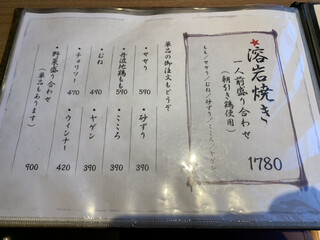 ★溶岩焼き
一人前盛り合わせ
(朝引き鶏使用)
もも/ササリ/むね/砂ずり/こころ/ヤゲン
1780
単品の御注文もどうぞ
・ササリ 590
・砂ずり 390
・丹波地鶏もも 590
・こころ 390
・むね 490
・ヤゲン 390
・チョリソー 470
・ウインナー 420
・野菜盛り合わせ 900
(単品もあります)